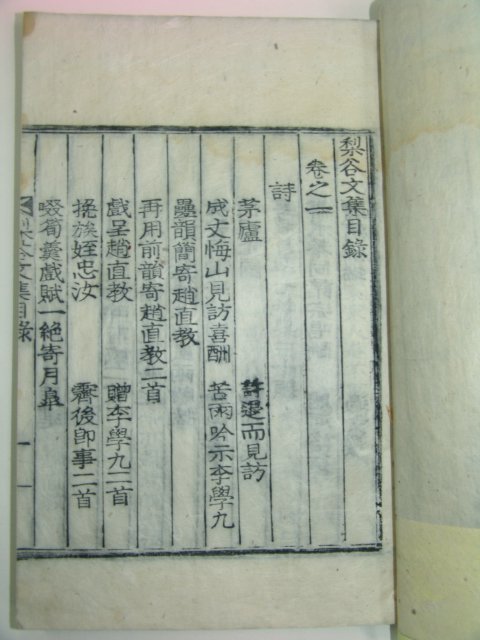 梨谷文集目錄
卷之一
詩
茅廬　許退而見訪
成文悔山見訪喜酬　苦雨吟示李學九
疊韻簡寄趙直敎
再用前韻寄趙直敎二首
戲呈趙直敎　贈李學九二首
挽族姪忠汝　霽後卽事二首
啜蔔羹戲賦一絶寄月皐
梨谷文集目錄
一